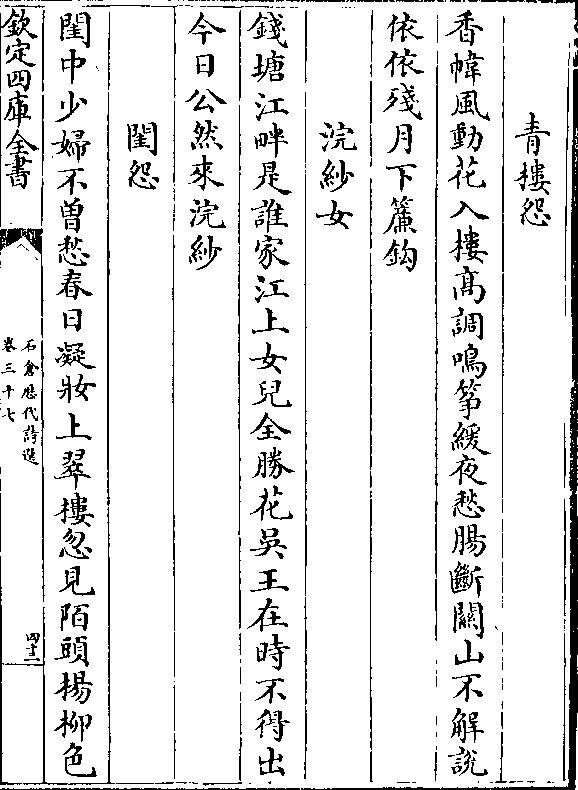 青樓怨
香幃風動花入樓髙調鳴筝緩夜愁腸斷關山不解說
依依殘月下簾鈎
浣紗女
錢塘江畔是誰家江上女兒全勝花吳王在時不得出
今日公然來浣紗
閨怨
閨中少婦不曽愁春日凝妝上翠樓忽見陌頭楊柳色
欽定四庫全書
石倉歴代詩選
卷三十七
四十二